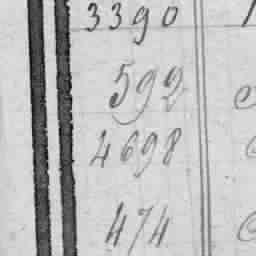 3390
592
4698
474